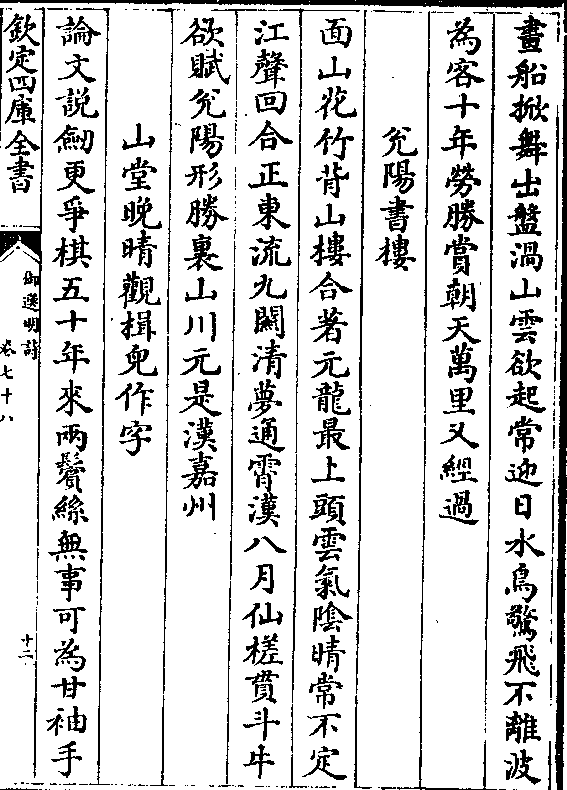 畫船掀舞出盤渦山雲欲起常迎日水鳥驚飛不離波
為客十年勞勝賞朝天萬里又經過
兊陽書樓
面山花竹背山樓合著元龍最上頭雲氣陰晴常不定
江聲回合正東流九闗清夢通霄漢八月仙槎貫斗牛
欲賦兊陽形勝裏山川元是漢嘉州
山堂晚晴觀揖兒作字
論文説劒更爭棋五十年來兩鬢絲無事可為甘袖手
欽定四庫全書
御選明詩
卷七十八
十二